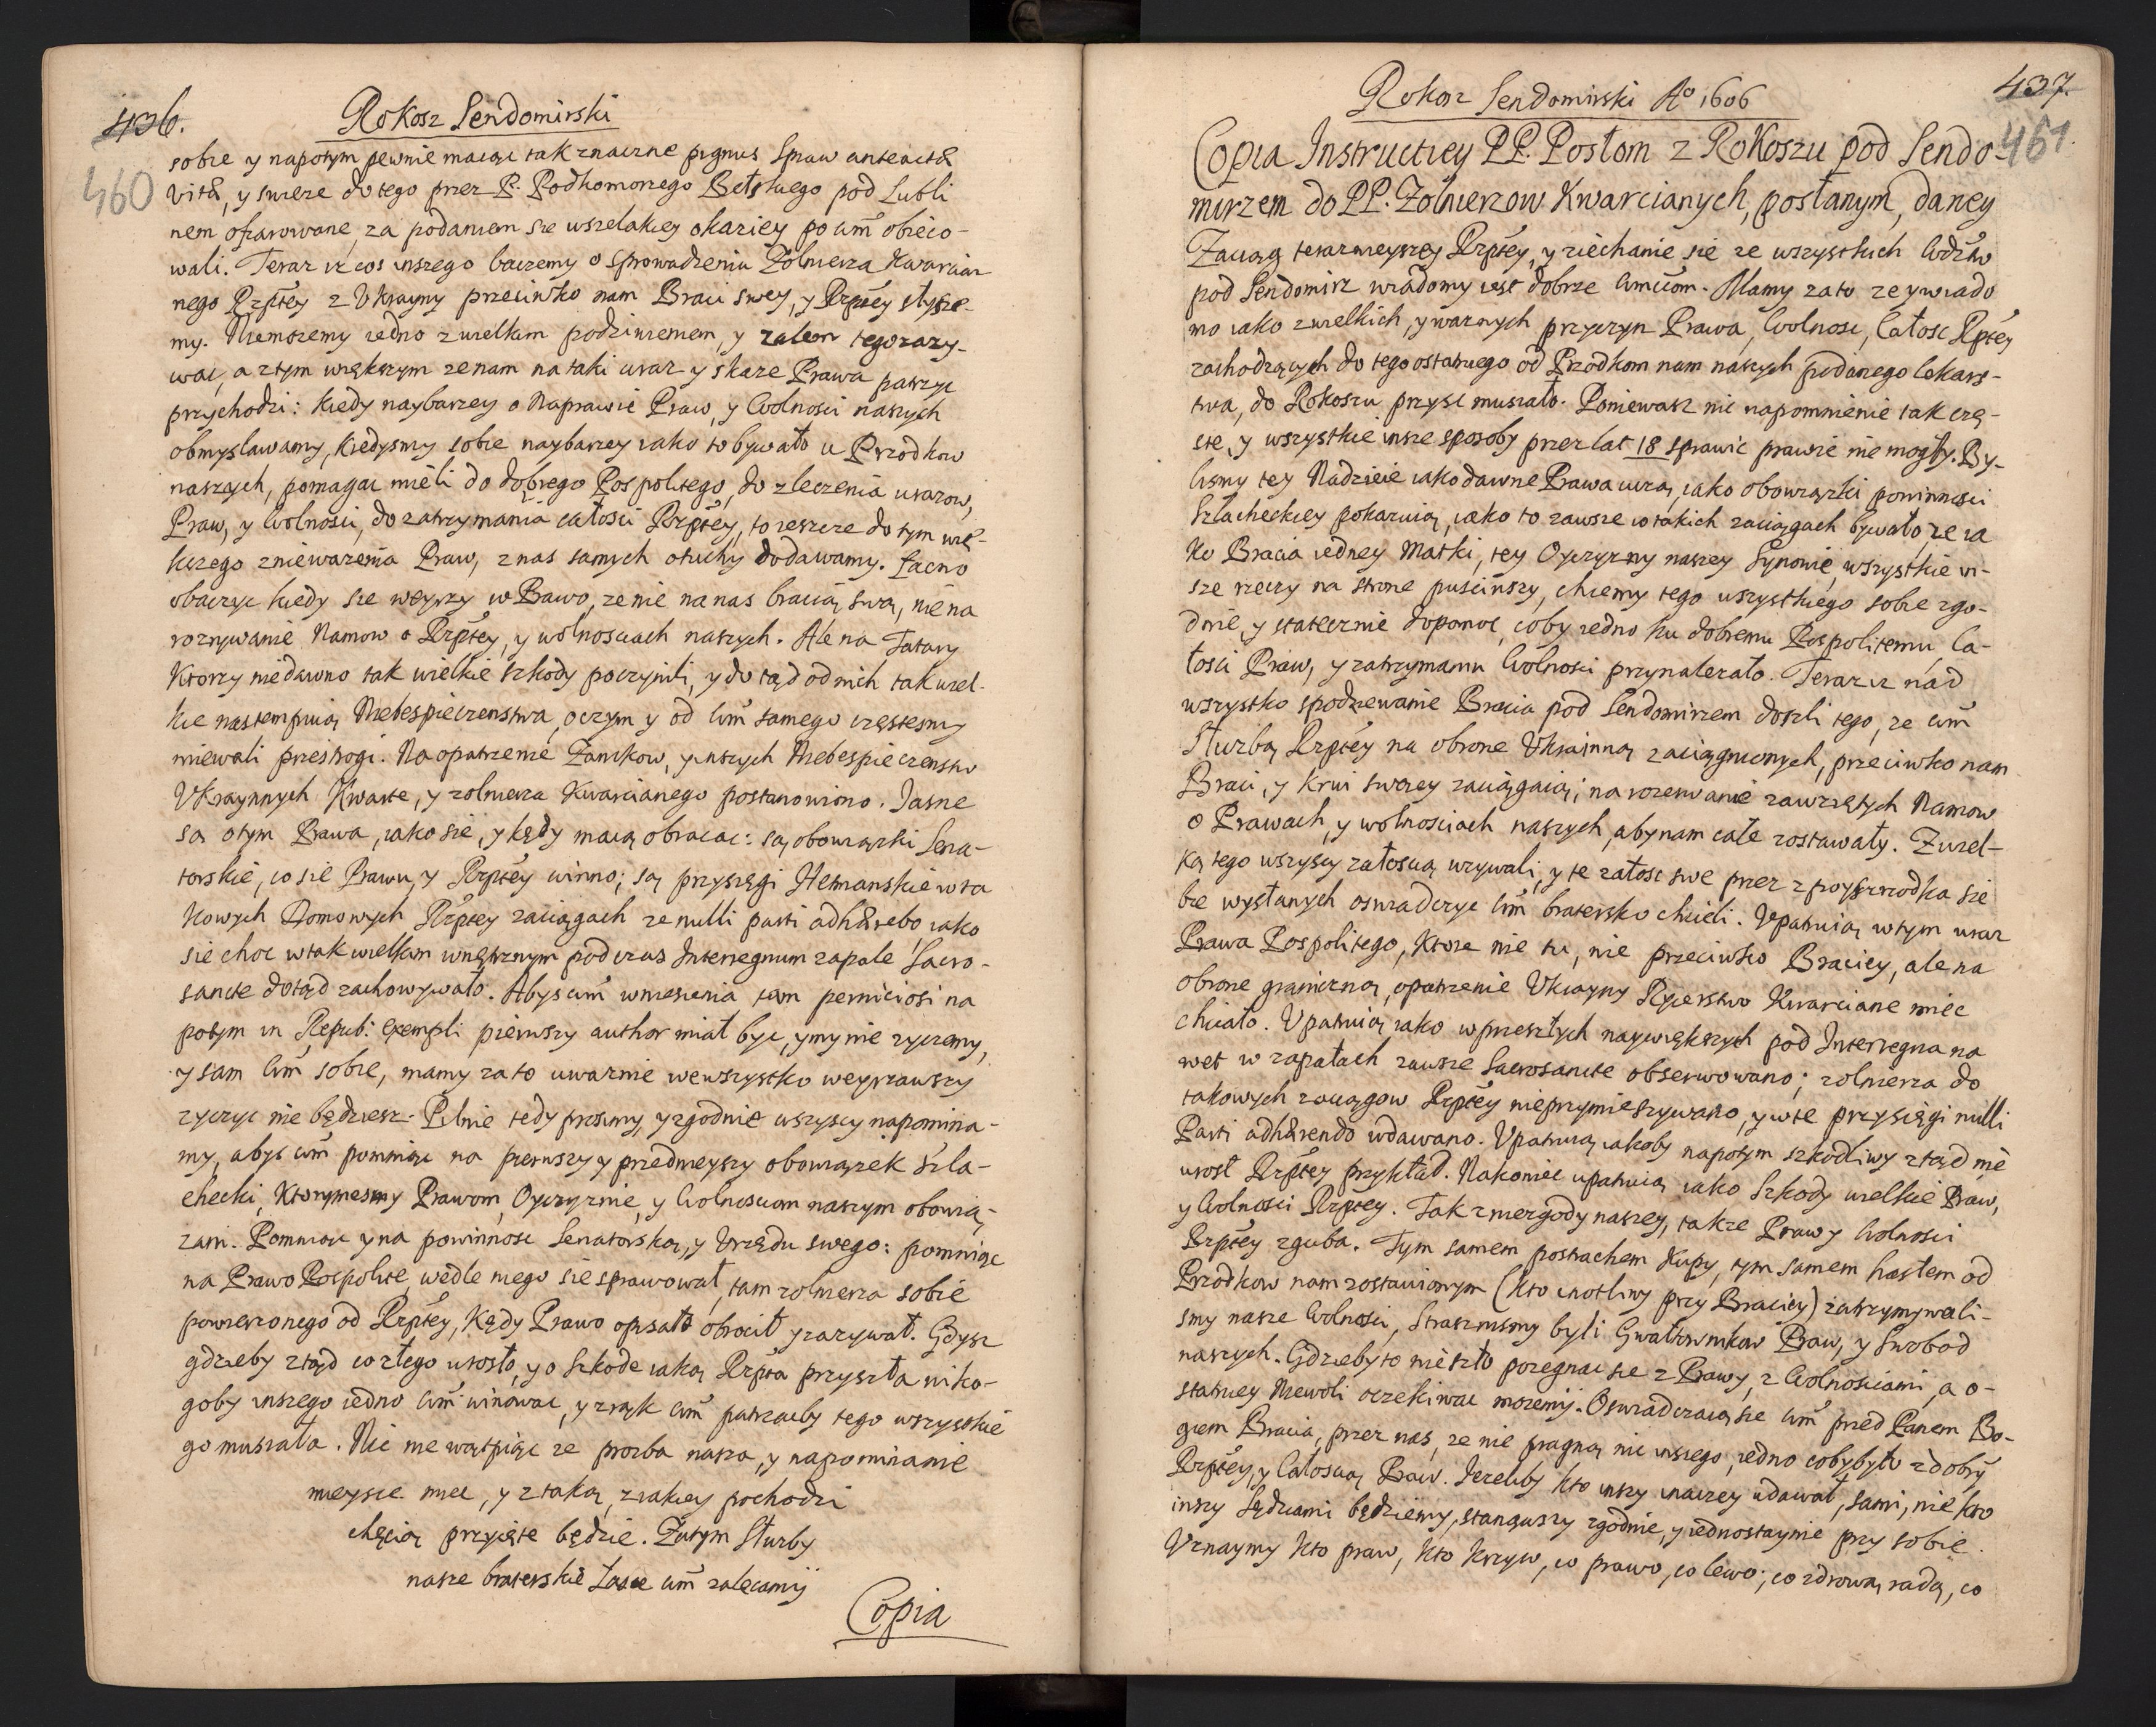 436.
Rokosz Sendomirski
460
sobie y napotym pewnie maiąc tak znaczne pignus Spraw anteactæ
vitæ, y swieze do tego przez P. Podkomorzego Bełskiego pod Lubli
nem ofiarowane, za podaniem sie wszelakiey okaziey po wm̃ obieco-
wali. Teraz iz cos inszego baczemy o sprowadzeniu Zołnierza Kwarcian
nego Rzptey z Vkrayny przeciwko nam Braci swey, y Rzptey słysze-
my. Niemozemy iedno z wielkim podziwieniem, y zalem tegozazy-
wac, a ztym większym ze nam na taki uraz y skaze Prawa patrzyc
przychodzi: kiedy naybarzey o Naprawie Praw, y Wolnosci naszych
obmyslawamy, kiedysmy sobie naybarzey iako to bywało u Przodkow
naszych, pomagac mieli do dobrego Pospolitego, do zleczenia urazow,
Praw, y Wolnosci, do zatrzymania całosci Rzptey, to ieszcze do tym wię-
kszego zniewazenia Praw, z nas samych otuchy dodawamy. Łacno
obaczyc kiedy sie weyzry w Prawo, ze nie na nas bracią swą, nie na
rozrywanie Namow o Rzptey, y wolnosciach naszych. Ale na Tatary
Ktorzy niedawno tak wielkie szkody poczynili, y do tąd od nich tak wiel-
kie nastempuią Niebespieczenstwa, o czym y od wm̃ samego częstesmy
miewali przestrogi. Na opatrzenie Zamkow, y inszych Niebespieczenstw
Vkraynnych Kwarte, y zolnierza Kwarcianego postanowiono. Jasne
są otym Prawa, iako sie, y kędy maią obracac: są obowiązki Sena-
torskie, co sie Prawu, y Rzptey winno; są przysięgi Hetmanskie w ta
kowych Domowych Rzptey zaciągach ze nulli parti adhærebo, iako
sie choc w tak wielkim wnętrznym podczas Interregnum zapale Sacro-
sancte dotąd zachowywało. Abys wm̃ wniesienia tam perniciosi na
potym in Repub: exempli pierwszy author miał byc, y my nie zyczemy,
y sam wm̃ sobie, mamy za to uwaznie we wszystko weyzrawszy
zyczyc nie będziesz. Pilnie tedy prosimy, y zgodnie wszyscy napomina-
my, abys wm̃ pomniąc na pierwszy y przednieyszy obowiązek szla-
checki, Ktorymesmy Prawom, Oyczyznie, y Wolnosciom naszym obowią-
zani. Pomniąc y na powinnosc Senatorską, y Vrzędu swego: pomniąc
na Prawo Pospolite, wedle niego sie sprawował, tam zolnierza sobie
powierzonego od Rzptey, Kędy Prawo opisało obrocił y zazywał. Gdysz
gdzieby ztąd co złego urosło, y o szkode iaką Rzpta przyszła niko-
goby inszego iedno wm̃ winowac, y z rąk wm̃ patrzacby tego wszystkie
go musiała. Nic nie wątpiąc ze prozba nasza, y napominanie
mieysce miec, y z taką, z iakiey pochodzi
chęcią przyięte będzie. Zatym Służby
nasze braterskie Łasce wm̃ zalecamy
Copia
Rokosz Sendomirski Ao 1606
437.
461.
Copia Instructiey PP. Posłom z Rokoszu pod Sendo-
mirzem do PP. Zołnierzow Kwarcianych, posłanym, daney
Zaciąg terazneyszey Rzptey, y ziechanie sie ze wszystkich Wdztw
pod Sendomirz wiadomy iest dobrze wm̃ciom. Mamy za to ze y wiado
mo iako z wielkich, y waznych przyczyn Prawa, Wolnosc, Całosc Rptey
zachodzących do tego ostatniego od Przodkom nam naszych podanego lekars-
twa, do Rokoszu przysc musiało. Poniewasz nic napomnienie tak czę-
ste, y wszystkie insze sposoby przez lat 18 sprawic prawie nie mogły. By-
lismy tey Nadzieie iako dawne Prawa uczą, iako obowiązki powinnosci
Szlacheckiey pokazuią, iako to zawsze w takich zaciągach bywało, ze ia
ko Bracia iedney Matki, tey Oyczyzny naszey Synowie, wszystkie in-
sze rzeczy na strone pusciwszy, chcemy tego wszystkiego sobie zgo-
dnie, y statecznie dopomoc, coby iedno ku dobremu Pospolitemu, Ca-
łosci Praw, y zatrzymaniu Wolnosci przynalezało. Teraz iz nad
wszystko spodziewanie Bracia pod Sendomirzem doszli tego, ze wm̃
Służbą Rzptey na obrone Vkrainną zaciągnionych, przeciwko nam
Braci, y Krwi swoiey zaciągaią; na rozerwanie zawziętych Namow
o Prawach, y wolnosciach naszych, aby nam całe zostawały. Z wiel-
ką tego wszyscy załoscią uzywali, y te załosc swe przez z posrzodka sie
bie wysłanych oswiadczyc wm̃ bratersko chcieli. Vpatruią w tym uraz
Prawa Pospolitego, Ktore nie tu, nie przeciwko Braciey, ale na
obrone graniczną, opatrzenie Vkrayny Rycerstwo Kwarciane miec
chciało. Vpatruią iako w przeszłych naywiększych pod Interregna na
wet w zapałach zawsze Sacrosancte observowano; zolnierza do
takowych zaciągow Rzptey nieprzymieszywano, y w te przysięgi nulli
Parti adhærendo wdawano. Vpatruią iakoby napotym szkodliwy ztąd nie
urosł Rzptey przykład. Nakoniec upatruią iako Szkody wielkie Praw,
y Wolnosci Rzptey. Tak z niezgody naszey, takze Praw y Wolnosci
Rzptey zguba. Tym samem postrachem Kupy, tym samem hasłem od
Przodkow nam zostawionym (kto cnotliwy przy Braciey) zatrzymywali-
smy nasze Wolnosci, Strasznismy byli Gwałtownikow Praw, y Swobod
naszych. Gdzieby to nie szło pozegnac sie z Prawy, z Wolnosciami, a o-
statniey Niewoli oczekiwac mozemy. Oswiadczaią sie wm̃ przed Panem Bo-
giem Bracia, przez nas, ze nie pragną nic inszego, iedno coby było z dobrỹ
Rzptey, y Całoscią Praw. Jezeliby kto inszy inaczey udawał, sami, nie kto
inszy Sędziami będziemy, stanąwszy zgodnie, y iednostaynie przy sobie.
Vznaymy kto praw, kto krzyw, co prawo, co lewo; co zdrową radą, co